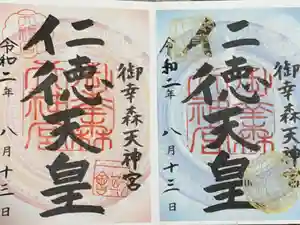 御幸森天神宮
仁徳天皇
令和二年
八月十三日
御幸森天神宮
仁徳天皇
令和二年
八月十三日